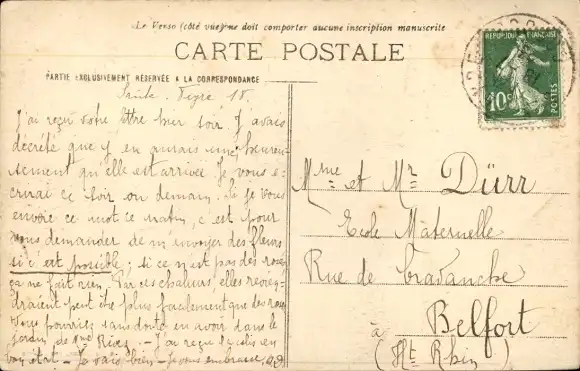 Le Verso (côté vue) ne doit comporter aucune inscription manuscrite
CARTE POSTALE
PARTIE EXCLUSIVEMENT RÉSERVÉE A LA CORRESPONDANCE
REPUBLIQUE FRANÇAISE
10c
POSTES
18.
J'ai reçu votre lettre hier soir. J'avais
décrété que j'en aurais une, heureu-
sement qu'elle est arrivée. Je vous é-
crirai ce soir ou demain. Si je vous
envoie ce mot ce matin, c'est pour
vous demander de m'envoyer des fleurs
si c'est possible; si ce n'est pas des roses
ça ne fait rien. Par ces chaleurs, elles revien-
draient peut être plus facilement que des roses
Vous pourriez sans doute en avoir dans le
jardin de Mme Rives. - J'ai reçu le colis en
bon état - Je vais bien - Je vous embrasse,
Mme et Mr Dürr
Ecole Maternelle
Rue de Cravanche
à Belfort
(Ht Rhin)